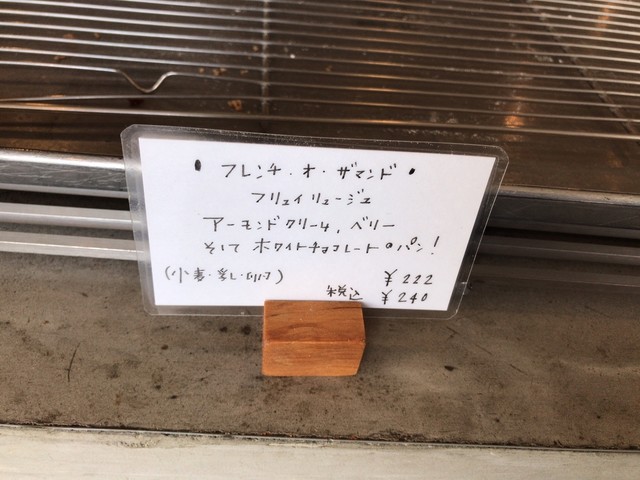 ・フレンチ・オ・ザマンド・
フリュイリュージュ
アーモンドクリーム、ベリー
そして ホワイトチョコレートのパン!
(小麦・乳・卵)
¥222
税込 ¥240